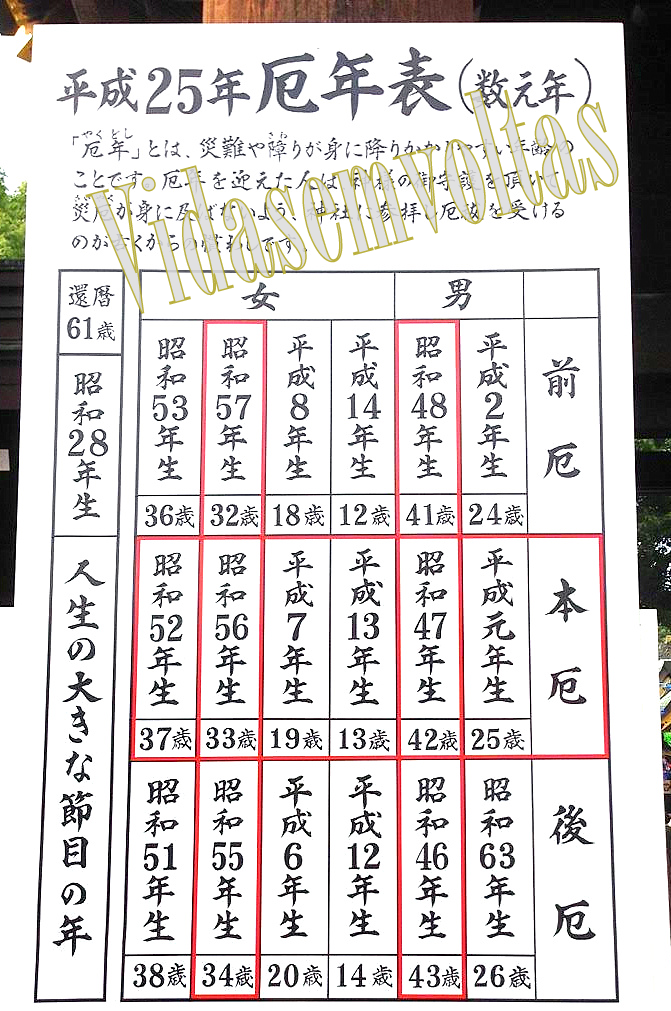 平成25年厄年表(数え年)
「厄年」とは、災難や障りが身に降りかかりやすい年齢の
ことです。厄年を迎えた人は神様の御守護を頂いて
災厄が身に及ばないよう、神社に参拝し厄祓を受ける
のが古くからの慣わしです。
Vidasemvoltas
男
女
前厄
平成2年生
24歳
昭和48年生
41歳
平成14年生
12歳
平成8年生
18歳
昭和57年生
32歳
昭和53年生
36歳
本厄
平成元年生
25歳
昭和47年生
42歳
平成13年生
13歳
平成7年生
19歳
昭和56年生
33歳
昭和52年生
37歳
後厄
昭和63年生
26歳
昭和46年生
43歳
平成12年生
14歳
平成6年生
20歳
昭和55年生
34歳
昭和51年生
38歳
還暦
61歳
昭和28年生
人生の大きな節目の年